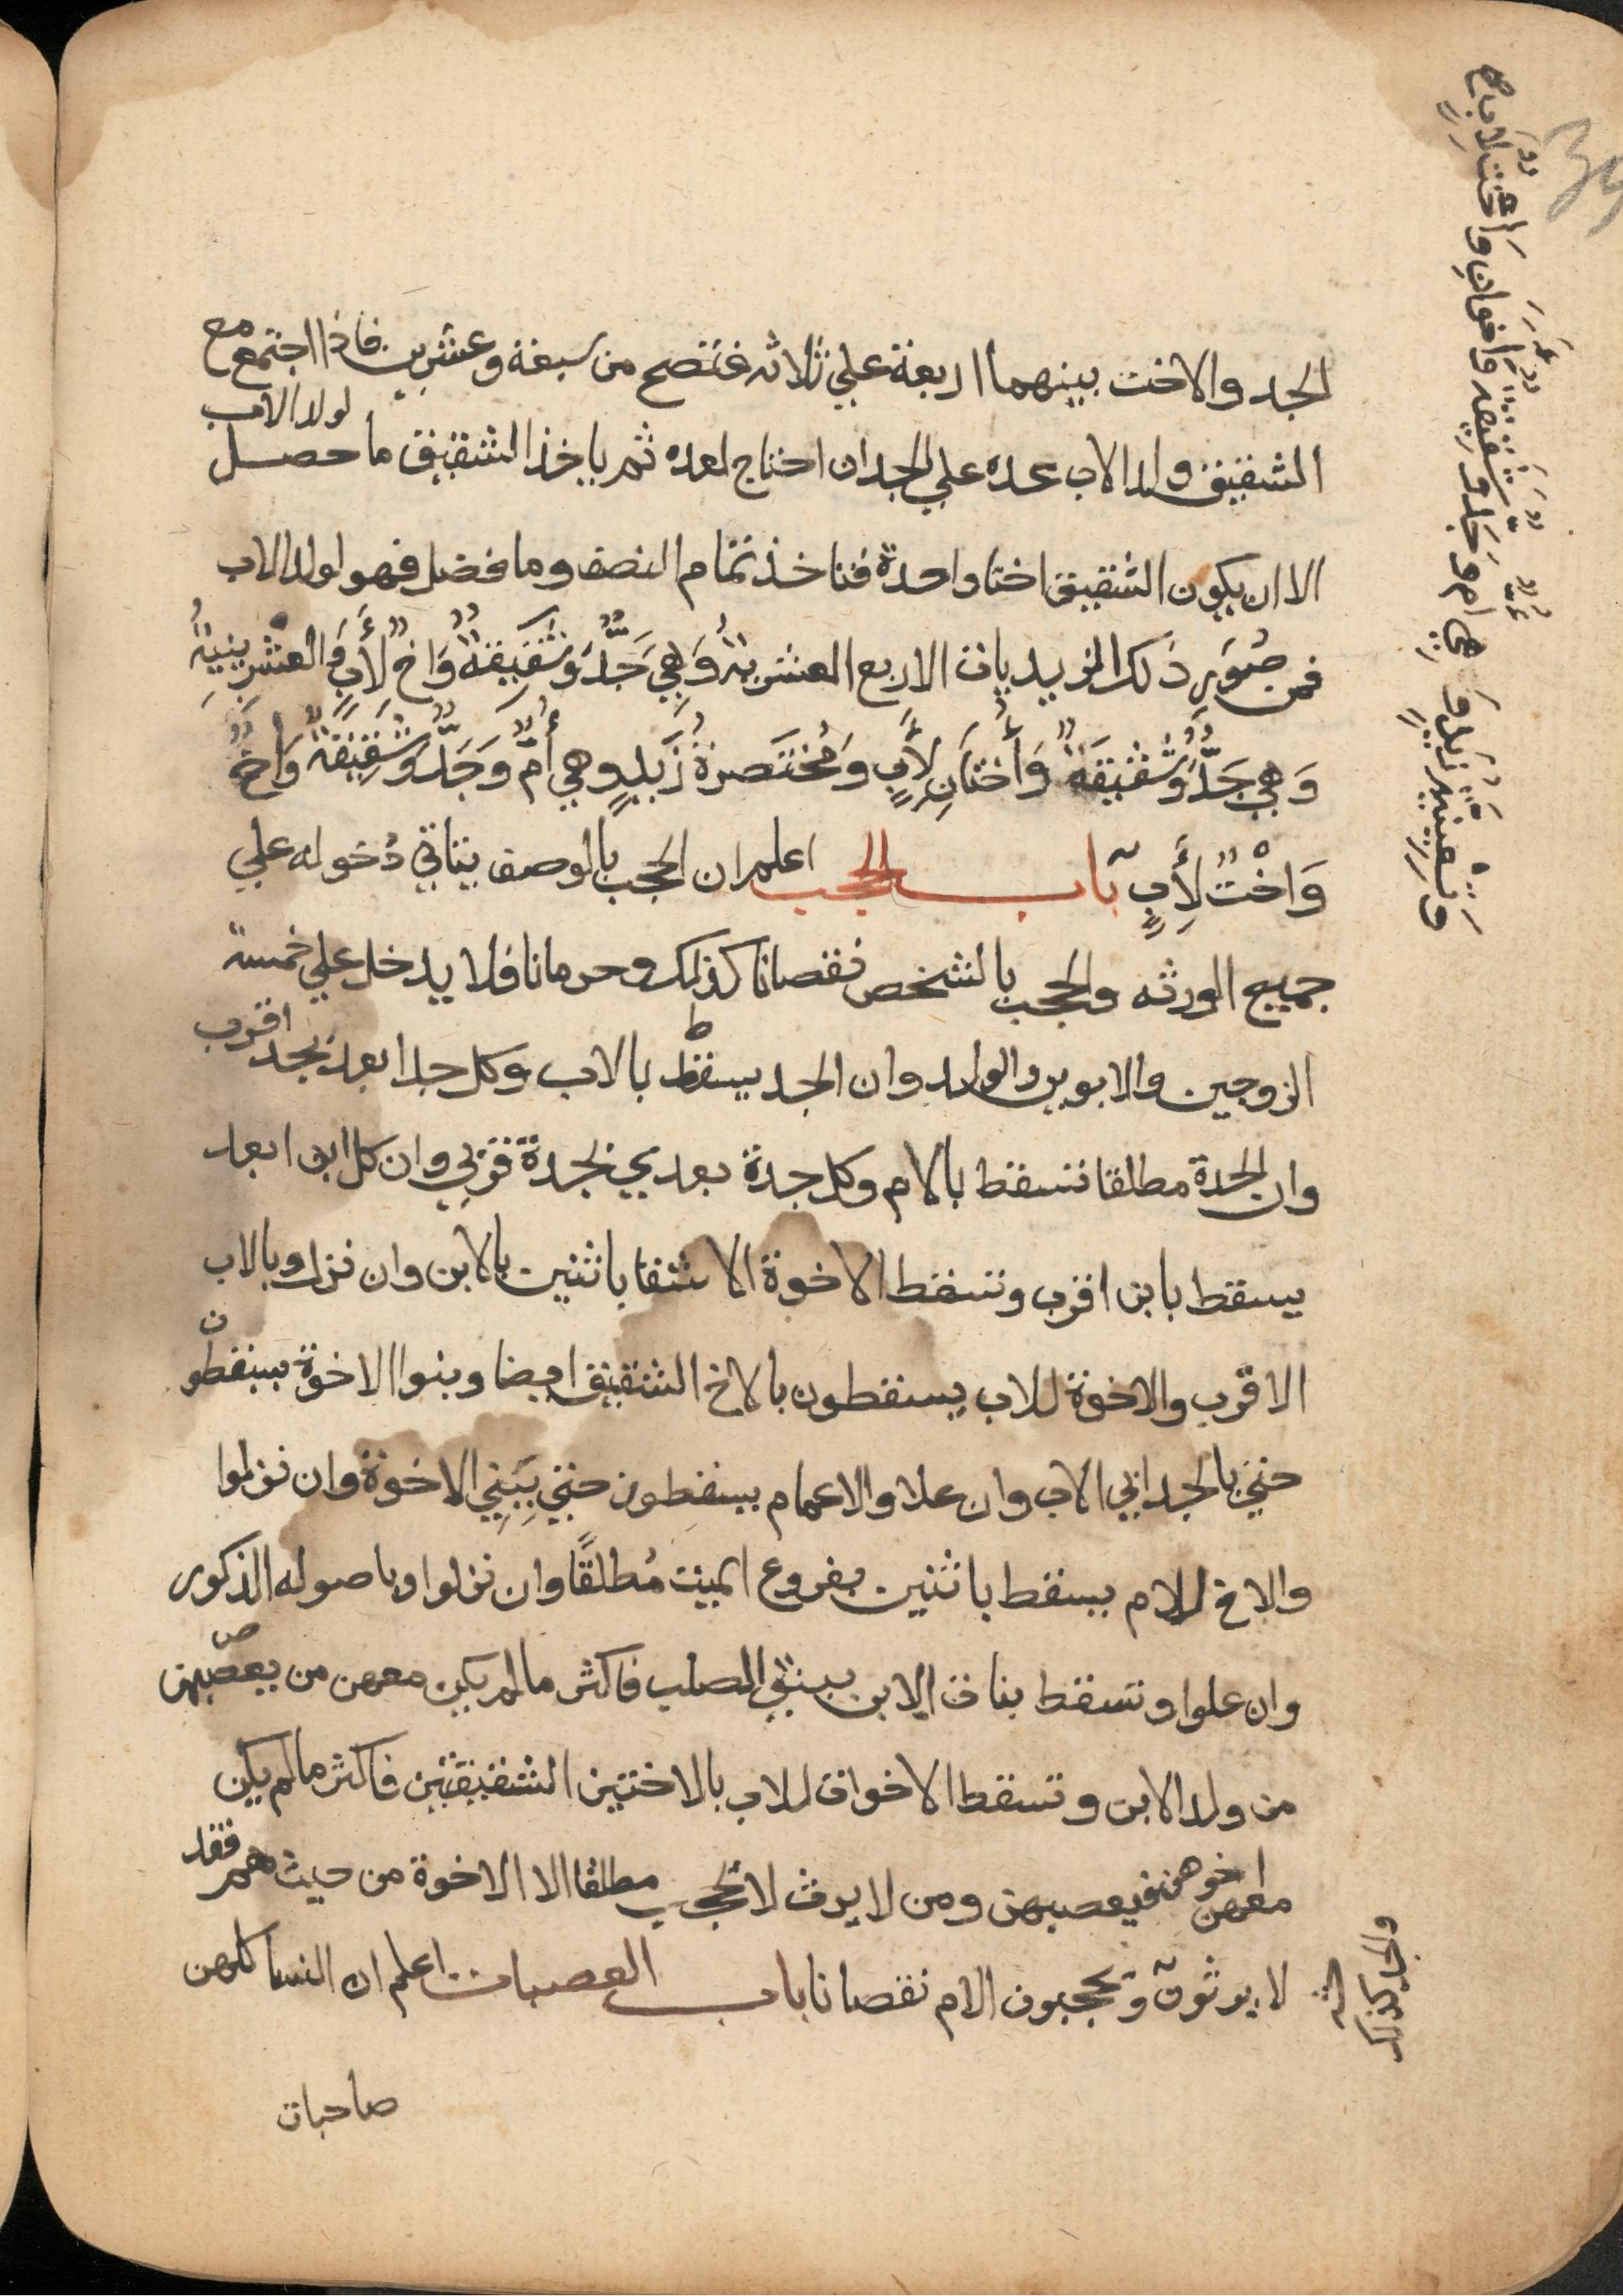 الجد والاخت بينهما اربعة علي ثلاثه فتصح من سبعة وعشرين فاذا اجتمع مع
الشقيق ولد الاب عده علي الجد ان احتاج لعده ثم ياخذ الشقيق ما حصل لولد الاب
الا ان يكون الشقيق اختا واحدة فتاخذ تمام النصف وما فضل فهو لولد الاب
فمن صُوَرِ ذلك الزيديات الاربع العشريةُ وَهِيَ جَدٌّ وَشَقِيقَةٌ وَاخٌ لِأَبٍ وَالعشرينيةُ
وَهِيَ جَدٌّ وَشَقِيقَةٌ وَأُختَانِ لِأَبٍ وَمُختَصَرةُ زَيدٍ وهي أُمٌّ وَجَدٌّ وَشَقِيقَةٌ وَاخٌ
وَاخْتٌ لِأَبٍ باب الحجب اعلم ان الحجب بالوصف يتاتي دُخوله علي
جميع الورثه والحجب بالشخص نقصانا كذلك وحرمانا فلا يدخل علي خمسة
الزوجين والابوين والولد وان الجد يسقط بالاب وكل جد ابعد بجد اقرب
وان الجدة مطلقا تسقط بالام وكل جدة بعدي بجدة قربي وان كل ابن ابعد
يسقط بابن اقرب وتسقط الاخوة الاشقا باثنين بالابن وان نزل وبالاب
الاقرب والاخوة للاب يسقطون بالاخ الشقيق ايضا وبنوا الاخوة يسقطون
حتي بالجد ابي الاب وان علا والاعمام يسقطون حتي بِبَنِي الاخوة وان نزلوا
والاخ للام يسقط باثنين بفروع الميت مُطلقًا وان نزلوا وباصوله الذكور
وان علوا وتسقط بنات الابن ببنتي الصلب فاكثر ما لم يكن معهن من يعصبهن
من ولد الابن وتسقط الاخوات للاب بالاختين الشقيقتين فاكثر ما لم يكن
معهن اخوهن فيعصبهن ومن لا يرث لا يحجب مطلقا الا الاخوة من حيث هم فقد
لا يرثون ويحجبون الام نقصانا باب العصبات اعلم ان النسا كلهن
صاحبات
وَتسعينيةُ زَيدٍ وَهي ام وَجَدٌّ وَشَقيقة وَاخوانِ وَاخت لاب صح